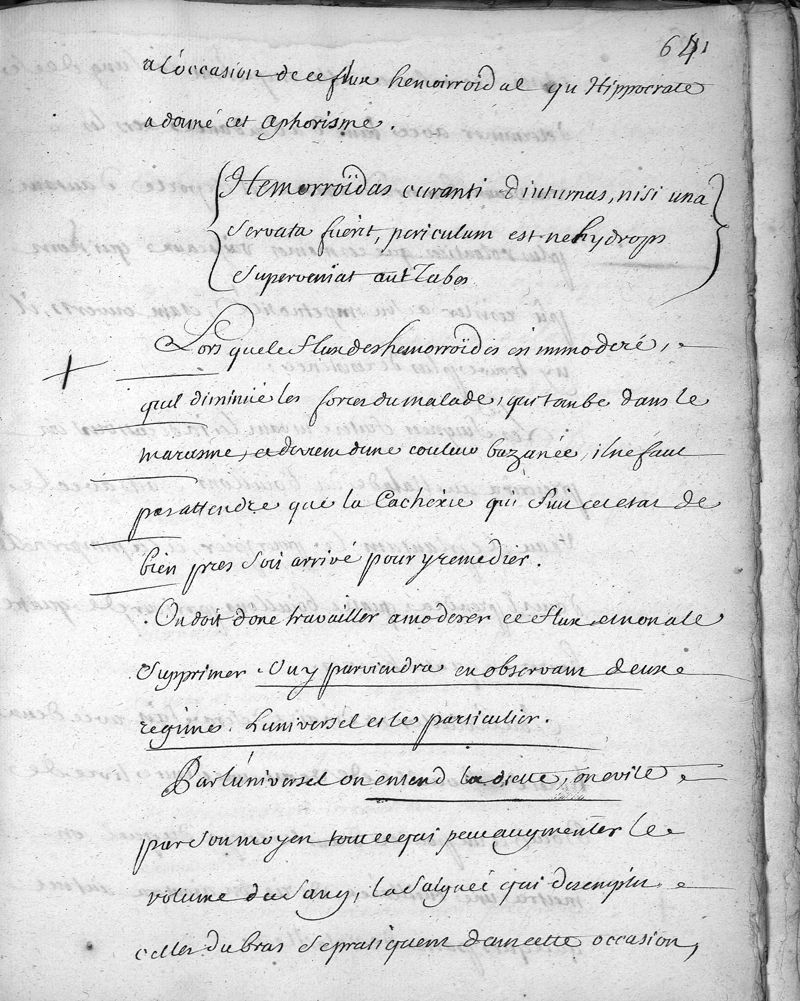 641
a l'occasion de ce flux hemoirroïdal qu Hippocrate
a donné cet aphorisme.
Hemorroïdas curanti diuturnas, nisi una
servata fuerit, periculum est ne hydrops
superveniat aut Tabes
Lors quele flux des hemorroïdes est immoderé,
quil diminüe les forces du malade, qui tombe dans le
marasme, et devient d'une couleur bazanée, il ne faut
pas attendre que la Cachexie qui suit cet etat de
bien pres soit arrivé pour y remedier.
On doit donc travailler a moderer ce flux et non a le
supprimer. On y parviendra en observant deux
regime. L'universel et le particulier.
Par l'universel on entend la diette, on evite
par son moyen tout ce qui peut augmenter le
volume du sang, la saignée qui desemplit
celles du bras se pratiquent dans cette occasion,